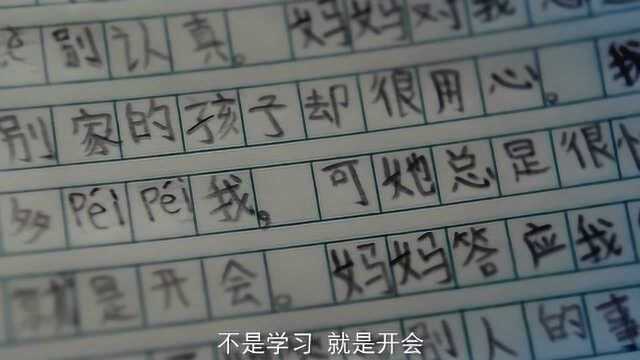 别认真。妈妈对我
别家的孩子却很用心。我
多péi péi我。可她总是很忙
就是开会。妈妈答应我
别人的事
不是学习 就是开会